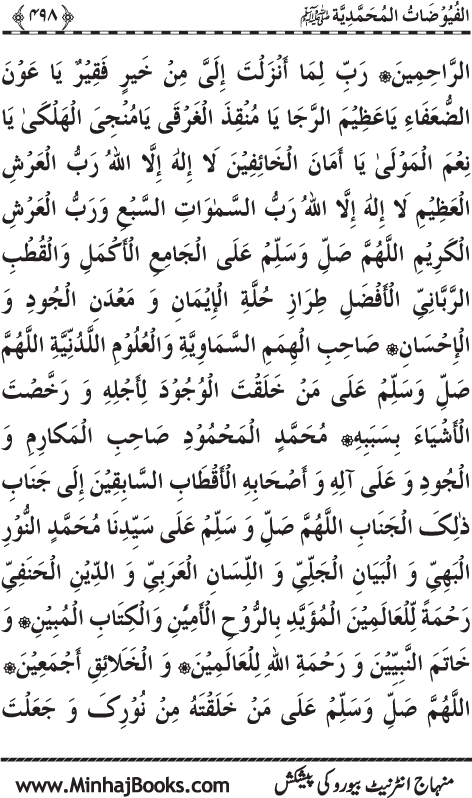 الفُيُوْضَاتُ المُحَمَّدِيَّة ﷺ ﴿۴۹۸﴾
الرَّاحِمِينَ۞ رَبِّ لِمَا أَنْزَلْتَ إِلَيَّ مِنْ خَيرٍ فَقِيْرٌ يَا عَوْنَ
الضُّعَفَاءِ يَاعَظِيْمَ الرَّجَا يَا مُنْقِذَ الْغَرْقَى يَامُنْجِىَ الْهَلْكَىٰ يَا
نِعْمَ الْمَوْلَىٰ يَا أَمَانَ الْخَائِفِيْنَ لَا إِلٰهَ إِلَّا اللهُ رَبُّ الْعَرْشِ
الْعَظِيْمِ لَا إِلٰهَ إِلَّا اللهُ رَبُّ السَّمٰوَاتِ السَّبْعِ وَرَبُّ الْعَرْشِ
الْكَرِيْمِ اللَّهُمَّ صَلِّ وَسَلِّمْ عَلَى الْجَامِعِ الْأَكْمَلِ وَالْقُطْبِ
الرَّبَّانِيِّ الْأَفْضَلِ طِرَازِ حُلَّةِ الْإِيْمَانِ وَ مَعْدَنِ الْجُودِ وَ
الْإِحْسَانِ۞ صَاحِبِ الْهِمَمِ السَّمَاوِيَّةِ وَالْعُلُوْمِ اللَّدُنِّيَّةِ اللَّهُمَّ
صَلِّ وَسَلِّمْ عَلَى مَنْ خَلَقْتَ الْوُجُوْدَ لِأَجْلِهِ وَ رَخَّصْتَ
الْأَشْيَاءَ بِسَبَبِهِ۞ مُحَمَّدٍ الْمَحْمُوْدِ صَاحِبِ الْمَكَارِمِ وَ
الْجُودِ وَ عَلَى آلِهِ وَ أَصْحَابِهِ الْأَقْطَابِ السَّابِقِيْنَ إِلَى جَنَابِ
ذٰلِكَ الْجَنَابِ اللَّهُمَّ صَلِّ وَ سَلِّمْ عَلَى سَيِّدِنَا مُحَمَّدٍ النُّوْرِ
الْبَهِيِّ وَ الْبَيَانِ الْجَلِيِّ وَ اللِّسَانِ الْعَرَبِيِّ وَ الدِّيْنِ الْحَنَفِيِّ
رَحْمَةً لِّلْعَالَمِيْنَ الْمُؤَيَّدِ بِالرُّوْحِ الْأَمِيْنِ وَالْكِتَابِ الْمُبِيْنِ۞ وَ
خَاتَمِ النَّبِيِّيْنَ وَ رَحْمَةِ اللهِ لِلْعَالَمِيْنَ۞ وَ الْخَلَائِقِ أَجْمَعِيْنَ۞
اللَّهُمَّ صَلِّ وَسَلِّمْ عَلَى مَنْ خَلَقْتَهُ مِنْ نُوْرِكَ وَ جَعَلْتَ
منہاج انٹرنیٹ بیورو کی پیشکش www.MinhajBooks.com